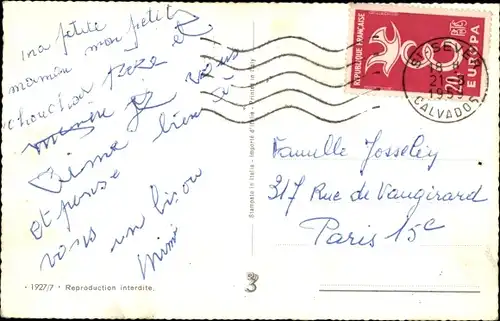 ma petite
maman mon petit
chouchou et
je vous
aime bien
et pense à
vous un bisou
Mimi
1927/7 - Reproduction interdite.
Stampato in Italia - Importé d'Italie - Printed in Italy
3
REPUBLIQUE FRANÇAISE
20F
EUROPA
POSTES
21-8
CALVADOS
Famille Josseley
317 Rue de Vaugirard
Paris 15e